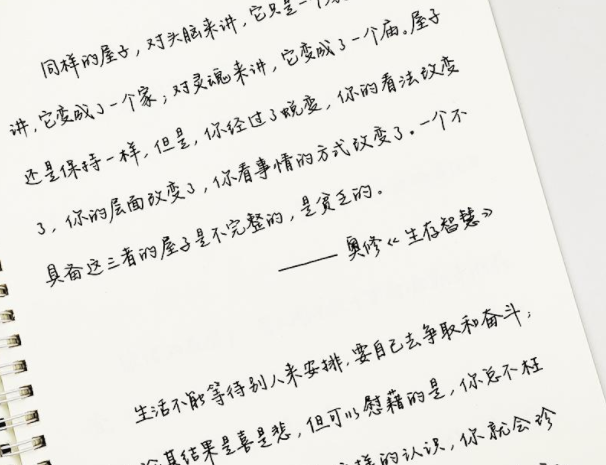 同样的屋子，对头脑来讲，它只是一个
讲，它变成了一个家；对灵魂来讲，它变成了一个庙。屋子
还是保持一样，但是，你经过了蜕变，你的看法改变
了，你的层面改变了，你看事情的方式改变了。一个不
具备这三者的屋子是不完整的，是贫乏的。
——奥修《生存智慧》
生活不能等待别人来安排，要自己去争取和奋斗；
其结果是喜是悲，但可以慰藉的是，你总不枉
样的认识，你就会珍